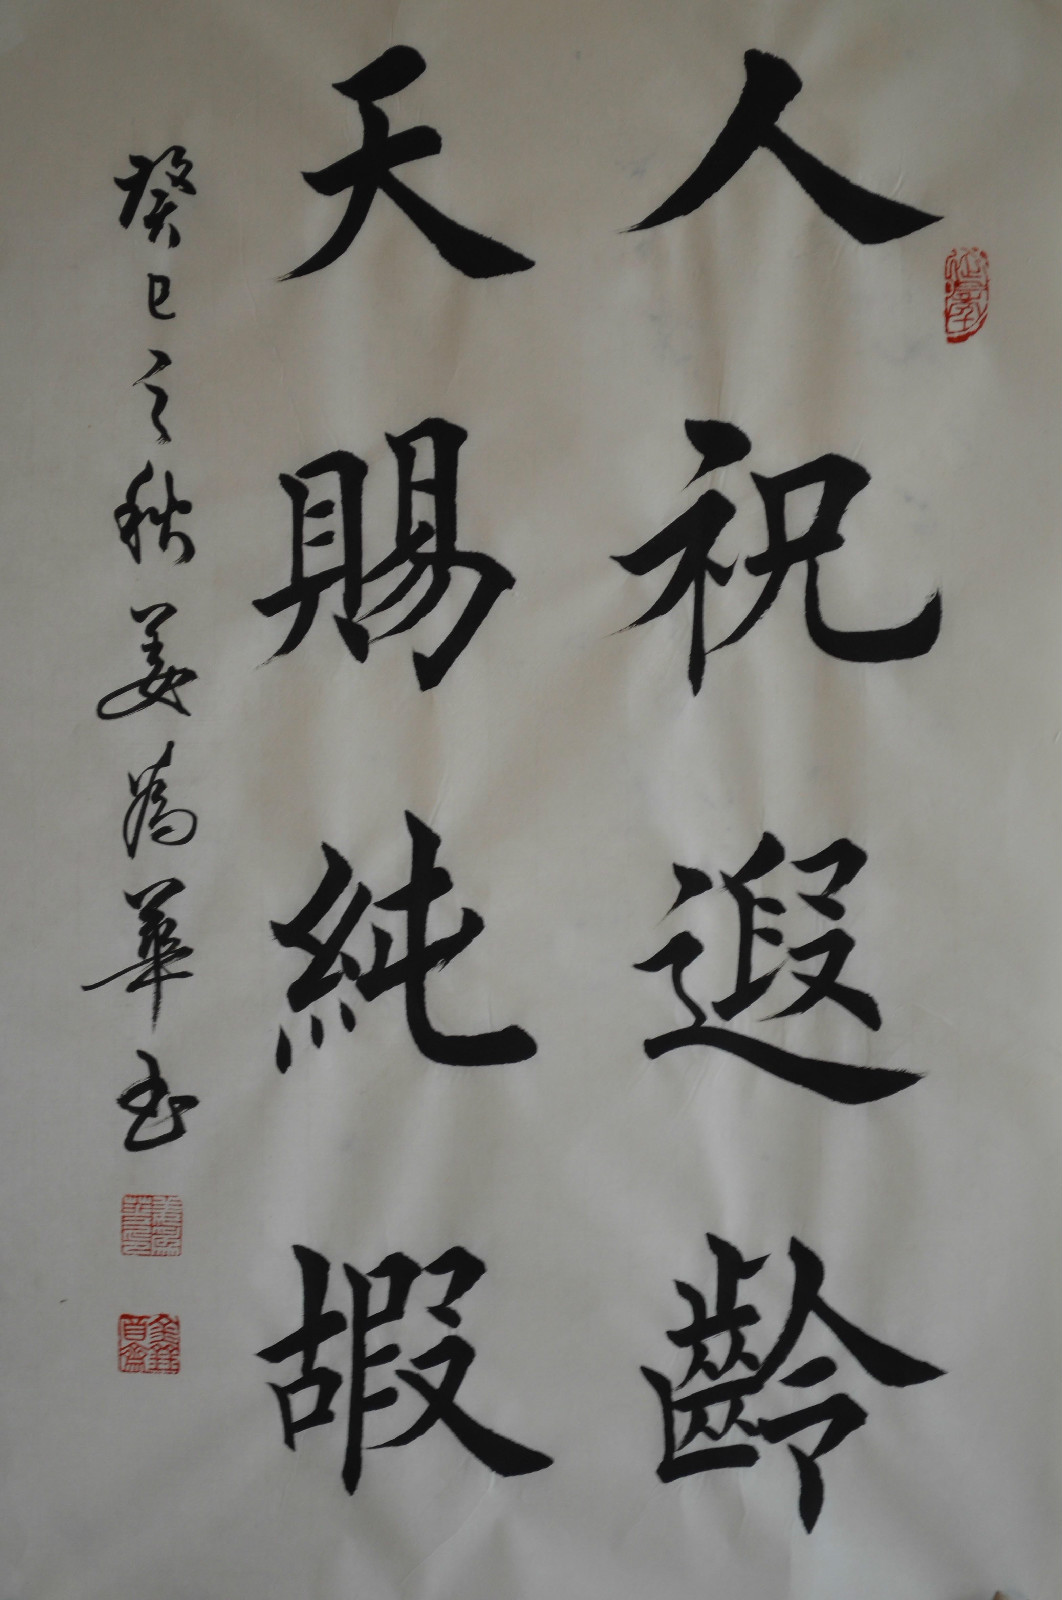 人祝遐齡
天賜純嘏
癸巳之秋姜為華書